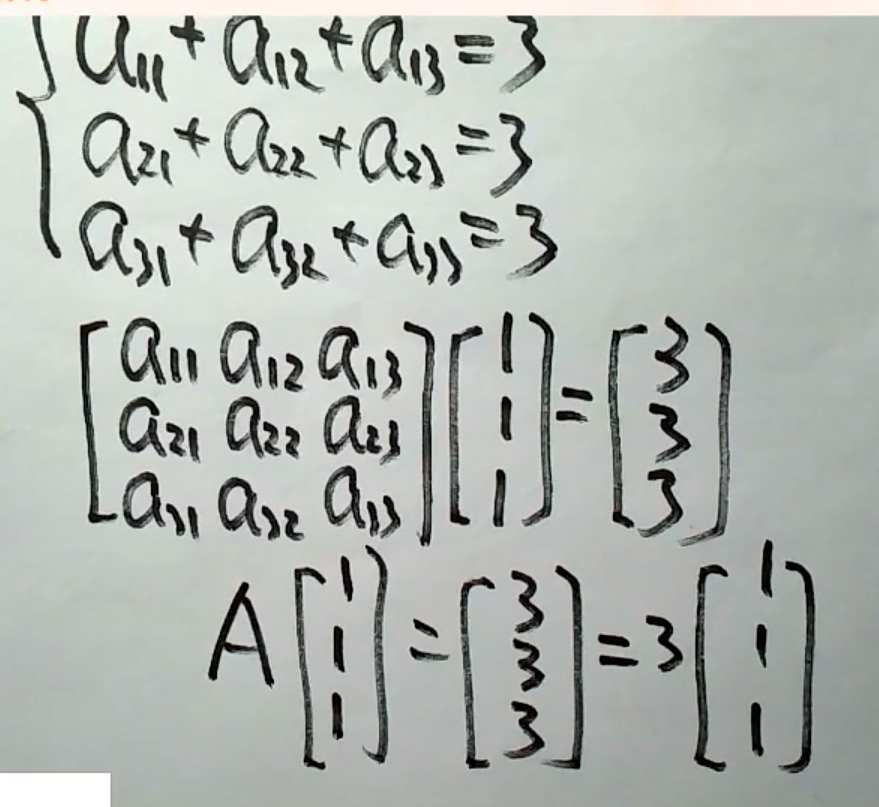 a₁₁ + a₁₂ + a₁₃ = 3
a₂₁ + a₂₂ + a₂₃ = 3
a₃₁ + a₃₂ + a₃₃ = 3
[a₁₁ a₁₂ a₁₃] [1] = [3]
[a₂₁ a₂₂ a₂₃] [1] = [3]
[a₃₁ a₃₂ a₃₃] [1] = [3]
A [1 1 1] = [3 3 3] = 3 [1 1 1]